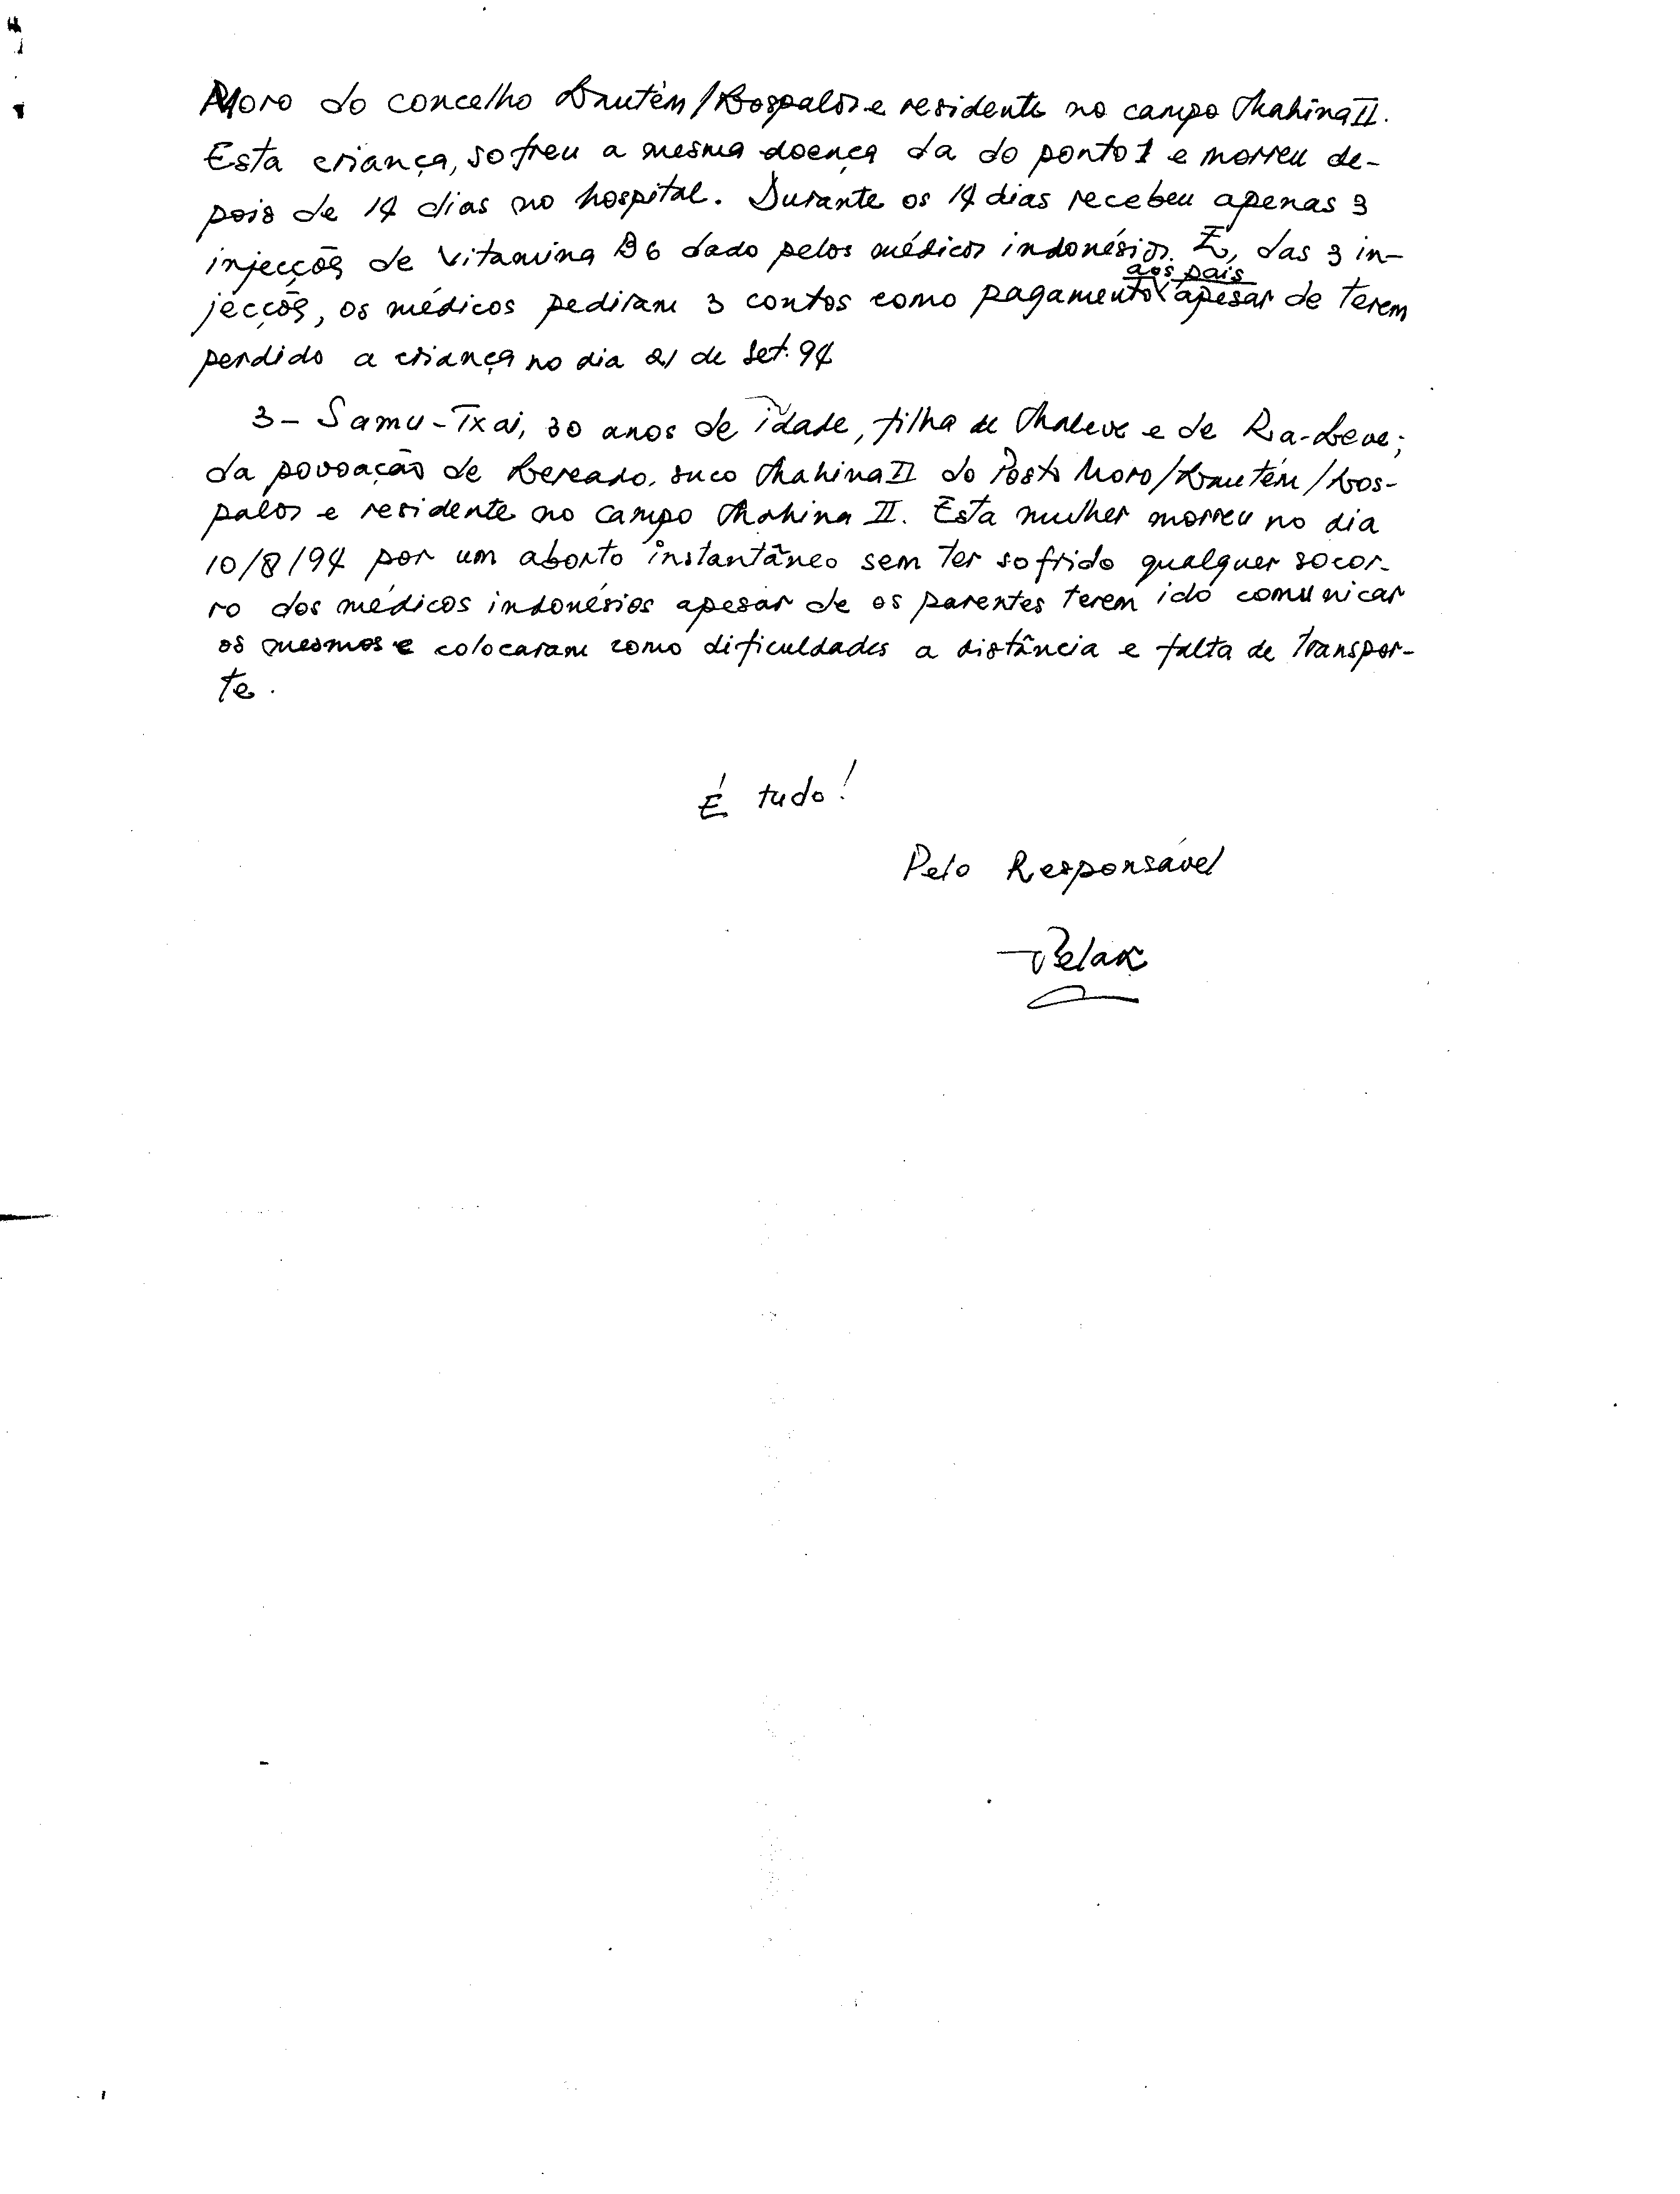 Moro do concelho Lautém/Lospalos e residente no campo Mahina II.
Esta criança, sofreu a mesma doença da do ponto 1 e morreu de-
pois de 14 dias no hospital. Durante os 14 dias recebeu apenas 3
injecções de vitamina B6 dado pelos médicos indonésios. E, das 3 in-
jecções, os médicos pediram 3 contos como pagamento aos pais apesar de terem
perdido a criança no dia 21 de Set. 94
3- Samu-Txai, 30 anos de idade, filha de Maleve e de Ra-Leve;
da povoação de Lereano, suco Mahina II do Posto Moro/Lautém/Los-
palos e residente no campo Mahina II. Esta mulher morreu no dia
10/8/94 por um aborto instantâneo sem ter sofrido qualquer socor-
ro dos médicos indonésios apesar de os parentes terem ido comunicar
os mesmos e colocaram como dificuldades a distância e falta de transpor-
te.
É tudo!
Pelo Responsável